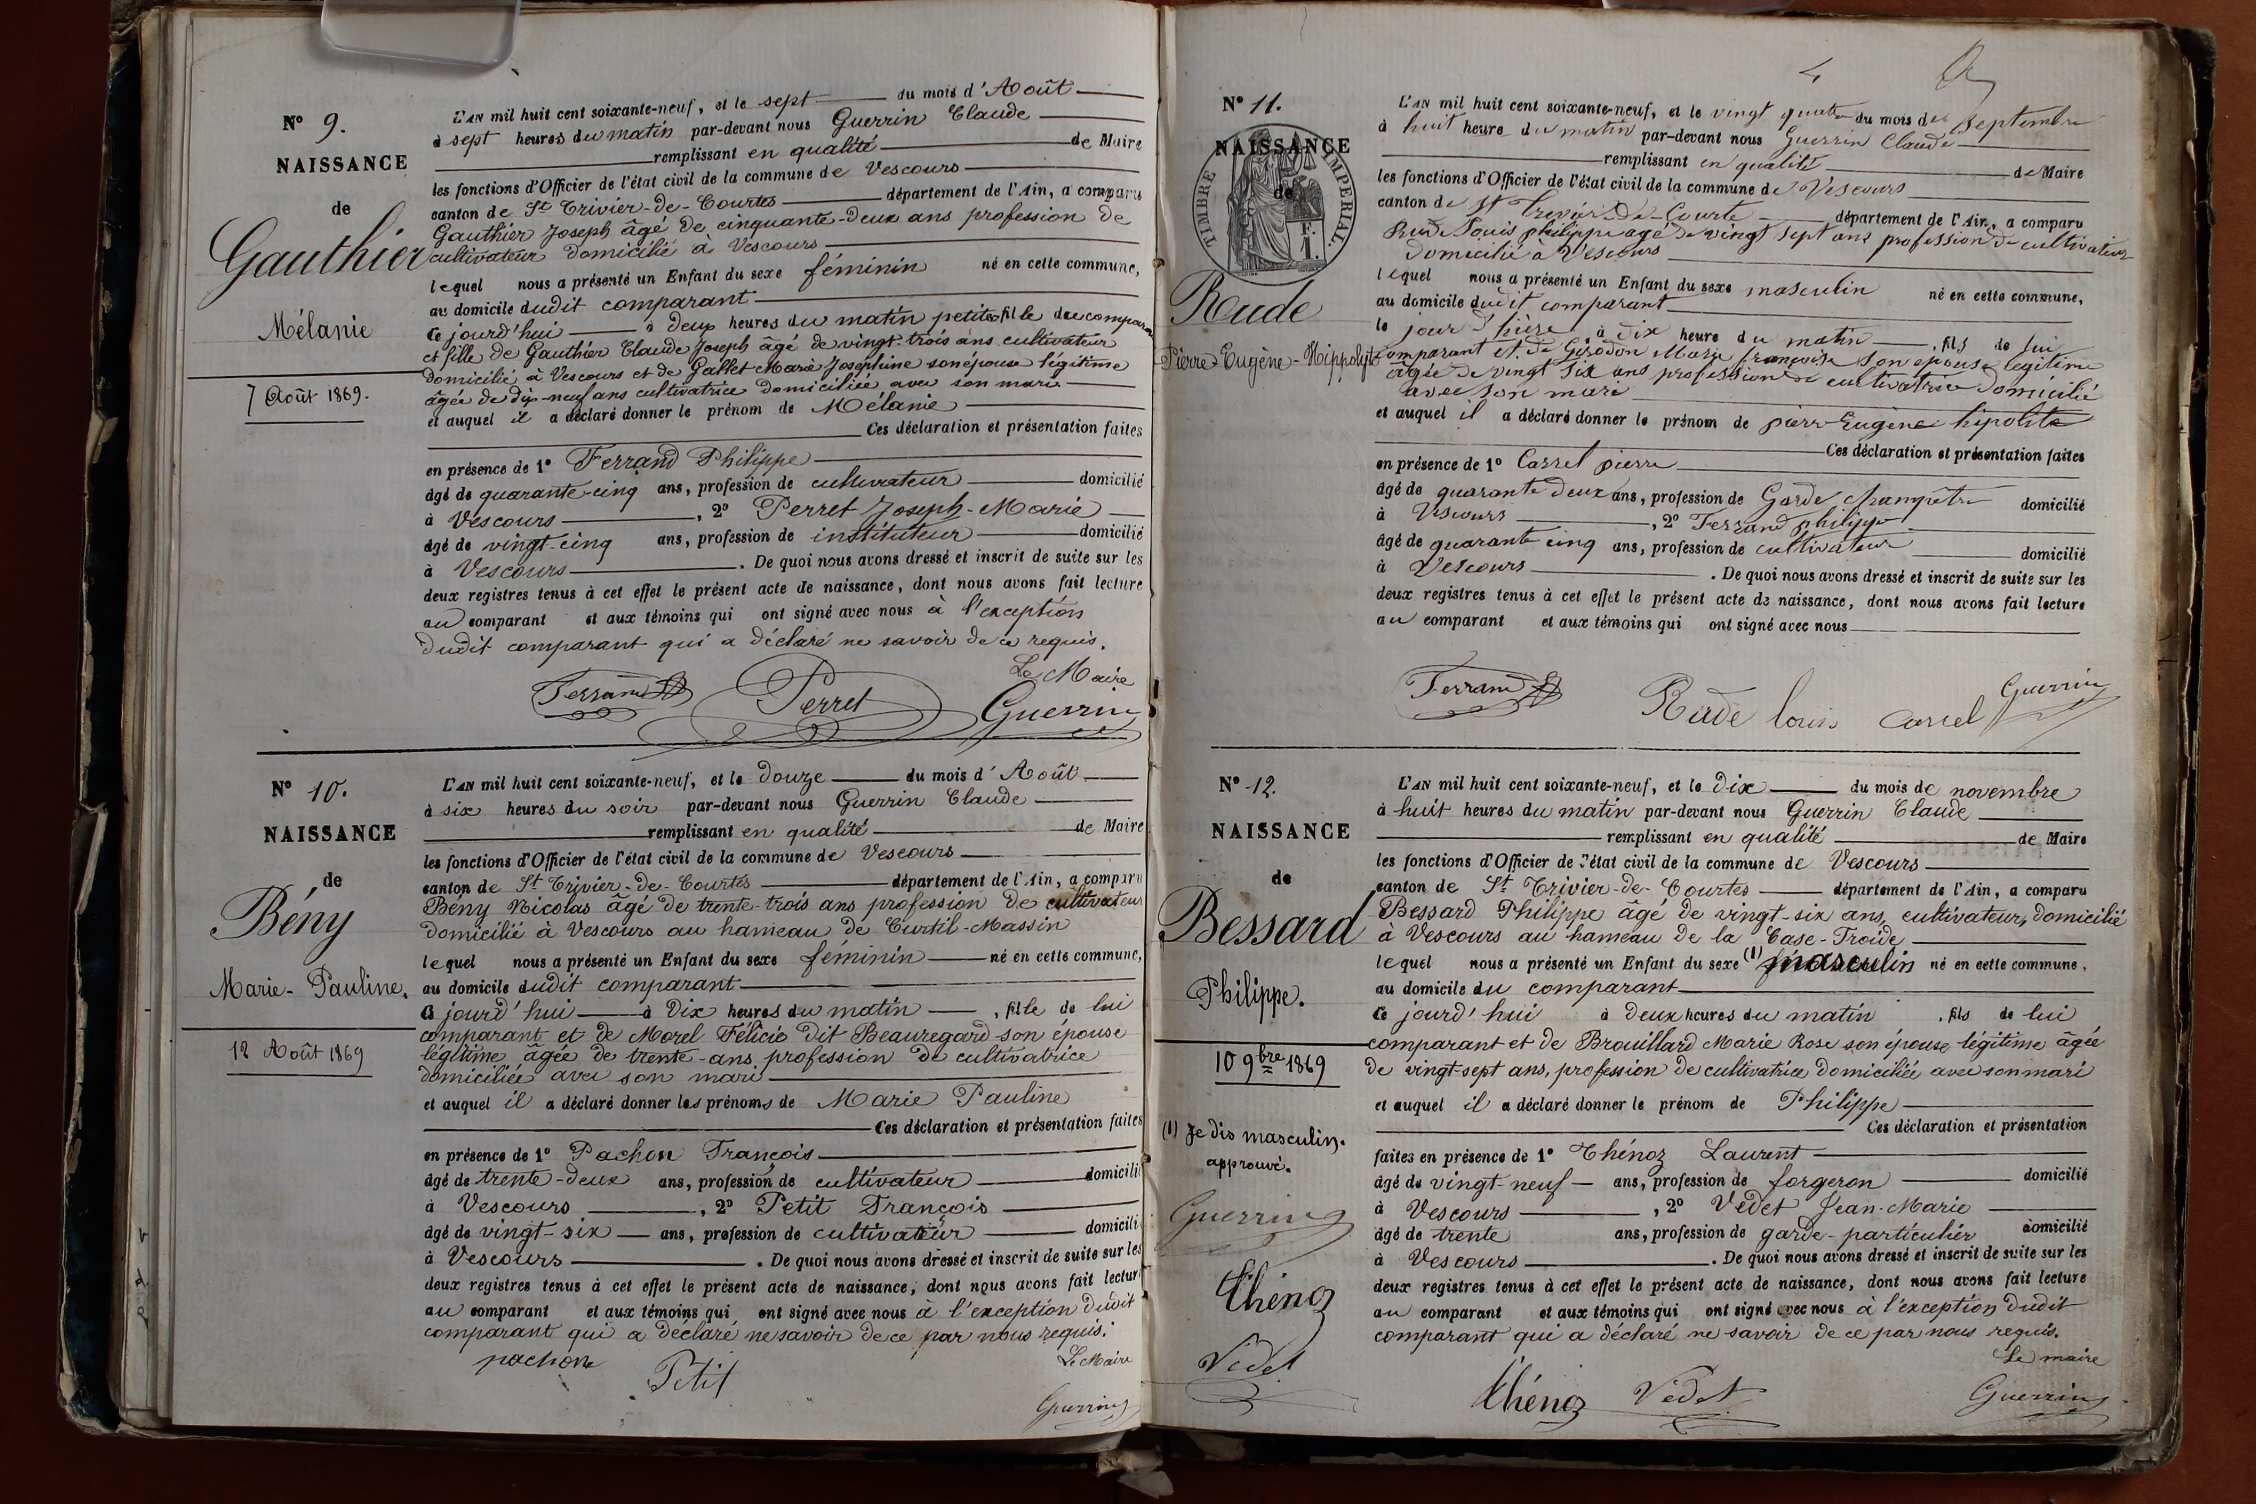 N° 9.
NAISSANCE
de
Gauthier
Mélanie
7 Août 1869.
L'AN mil huit cent soixante-neuf, et le sept du mois d'Août
à sept heures du matin par-devant nous Guerrin Claude
remplissant en qualité de Maire
les fonctions d'Officier de l'état civil de la commune de Vescours
canton de St Trivier-de-Courtes département de l'Ain, a comparu
Gauthier Joseph âgé de cinquante-deux ans profession de
cultivateur domicilié à Vescours
lequel nous a présenté un Enfant du sexe féminin né en cette commune,
au domicile dudit comparant
ce jourd'hui à deux heures du matin petite fille du comparant
et fille de Gauthier Claude Joseph âgé de vingt-trois ans cultivateur
domicilié à Vescours et de Gallet Marie Joséphine son épouse légitime
âgée de dix-neuf ans cultivatrice domiciliée avec son mari
et auquel il a déclaré donner le prénom de Mélanie
Ces déclaration et présentation faites
en présence de 1° Ferrand Philippe
âgé de quarante-cinq ans, profession de cultivateur domicilié
à Vescours, 2° Perret Joseph-Marie
âgé de vingt-cinq ans, profession de instituteur domicilié
à Vescours. De quoi nous avons dressé et inscrit de suite sur les
deux registres tenus à cet effet le présent acte de naissance, dont nous avons fait lecture
au comparant et aux témoins qui ont signé avec nous à l'exception
dudit comparant qui a déclaré ne savoir de ce requis.
Le Maire
Ferrand Perret Guerrin
N° 10.
NAISSANCE
de
Bény
Marie-Pauline.
12 Août 1869
L'AN mil huit cent soixante-neuf, et le douze du mois d'Août
à six heures du soir par-devant nous Guerrin Claude
remplissant en qualité de Maire
les fonctions d'Officier de l'état civil de la commune de Vescours
canton de St Trivier-de-Courtes département de l'Ain, a comparu
Bény Nicolas âgé de trente-trois ans profession de cultivateur
domicilié à Vescours au hameau de Curtil-Massin
lequel nous a présenté un Enfant du sexe féminin né en cette commune,
au domicile dudit comparant
ce jourd'hui à dix heures du matin, fille de lui
comparant et de Morel Félicie dit Beauregard son épouse
légitime âgée de trente-ans profession de cultivatrice
domiciliée avec son mari
et auquel il a déclaré donner les prénoms de Marie Pauline
Ces déclaration et présentation faites
en présence de 1° Pachon François
âgé de trente-deux ans, profession de cultivateur domicilié
à Vescours, 2° Petit François
âgé de vingt-six ans, profession de cultivateur domicilié
à Vescours. De quoi nous avons dressé et inscrit de suite sur les
deux registres tenus à cet effet le présent acte de naissance, dont nous avons fait lecture
au comparant et aux témoins qui ont signé avec nous à l'exception dudit
comparant qui a déclaré ne savoir de ce par nous requis.
pachon Petit Le Maire
Guerrin
4
N° 11.
NAISSANCE
de
TIMBRE IMPERIAL.
F.
1.
Rude
Pierre-Eugène-Hippolyte
L'AN mil huit cent soixante-neuf, et le vingt quatre du mois de Septembre
à huit heure du matin par-devant nous Guerrin Claude
remplissant en qualité de Maire
les fonctions d'Officier de l'état civil de la commune de Vescours
canton de St trivier-de-Courte département de l'Ain, a comparu
Rude Louis philippe agé de vingt sept ans profession de cultivateur
domicilié à Vescours
lequel nous a présenté un Enfant du sexe masculin né en cette commune,
au domicile dudit comparant
le jour d'hière à dix heure du matin, fils de lui
comparant et de Girodon Marie françoise son épouse légitime
âgée de vingt six ans profession de cultivatrice domicilié
avec son mari
et auquel il a déclaré donner le prénom de pierre Eugène hipolite
Ces déclaration et présentation faites
en présence de 1° Carrel pierre
âgé de quarante deux ans, profession de Garde champêtre domicilié
à Vescours, 2° Ferrand philippe
âgé de quarante cinq ans, profession de cultivateur domicilié
à Vescours. De quoi nous avons dressé et inscrit de suite sur les
deux registres tenus à cet effet le présent acte de naissance, dont nous avons fait lecture
au comparant et aux témoins qui ont signé avec nous
Ferrand Rude louis Carrel Guerrin
N° 12.
NAISSANCE
de
Bessard
Philippe.
10 9bre 1869
(1) Je dis masculin.
approuvé.
Guerrin
Thénoz
Vedet
L'AN mil huit cent soixante-neuf, et le dix du mois de novembre
à huit heures du matin par-devant nous Guerrin Claude
remplissant en qualité de Maire
les fonctions d'Officier de l'état civil de la commune de Vescours
canton de St Trivier-de-Courtes département de l'Ain, a comparu
Bessard Philippe âgé de vingt-six ans, cultivateur, domicilié
à Vescours au hameau de la Case-Froide
lequel nous a présenté un Enfant du sexe (1) masculin né en cette commune,
au domicile du comparant
ce jourd'hui à deux heures du matin, fils de lui
comparant et de Brouillard Marie Rose son épouse légitime âgée
de vingt-sept ans, profession de cultivatrice domiciliée avec son mari
et auquel il a déclaré donner le prénom de Philippe
Ces déclaration et présentation
faites en présence de 1° Thénoz Laurent
âgé de vingt-neuf ans, profession de forgeron domicilié
à Vescours, 2° Vedet Jean-Marie
âgé de trente ans, profession de garde-particulier domicilié
à Vescours. De quoi nous avons dressé et inscrit de suite sur les
deux registres tenus à cet effet le présent acte de naissance, dont nous avons fait lecture
au comparant et aux témoins qui ont signé avec nous à l'exception dudit
comparant qui a déclaré ne savoir de ce par nous requis.
Le maire
Thénoz Vedet Guerrin